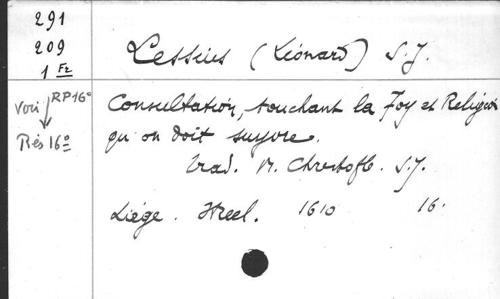 291
209
1 Fz
Lessius (Léonard) S.J.
Voir RP16°
Rés 16°
Consultation, touchant la Foy et Religion
qu'on doit suyvre.
Trad. M. Christofle. S.J.
Liége. Streel. 1610 16.